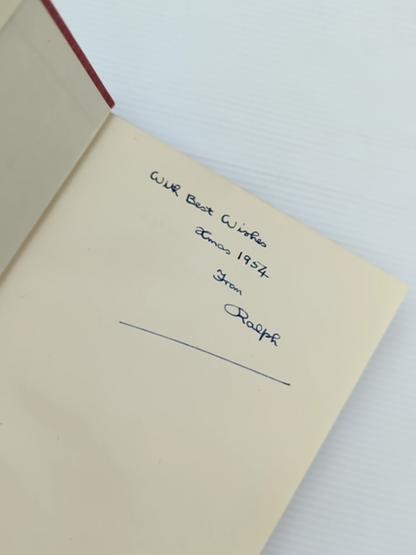 With Best Wishes
Xmas 1954
From
Ralph